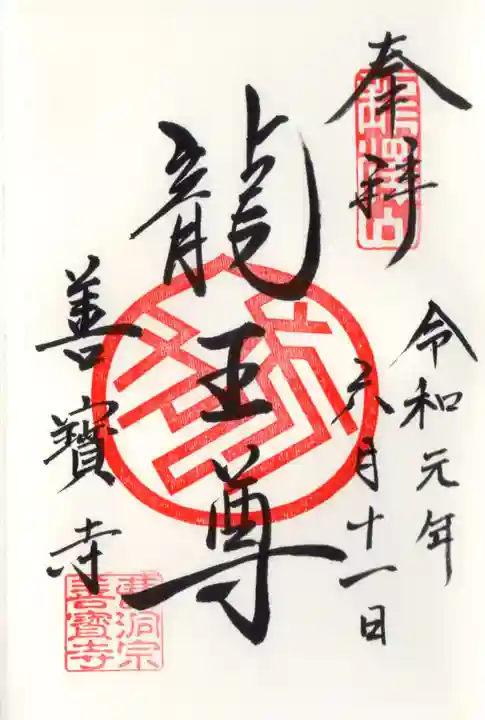 奉拝
龍澤山
令和元年
六月十一日
龍王尊
善寳寺
曹洞宗
善寳寺